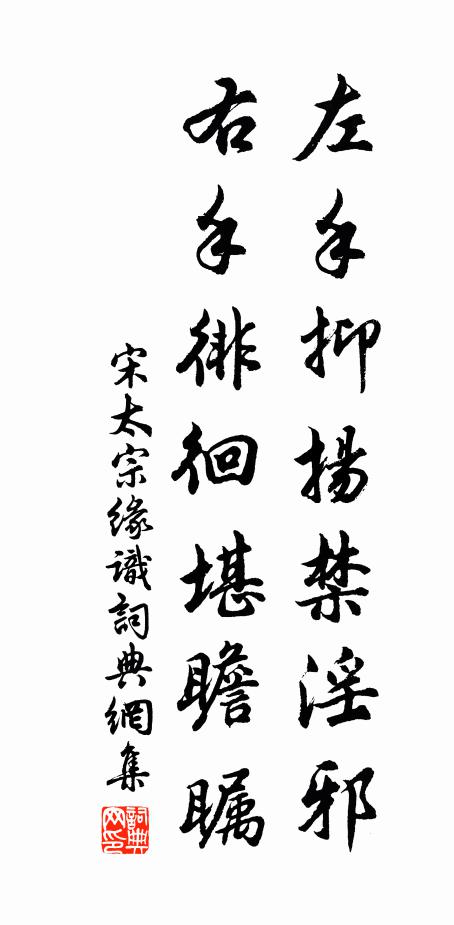 左手抑揚禁淫邪
右手徘徊堪瞻瞩
宋太宗缘識詞典網集
詞典网印